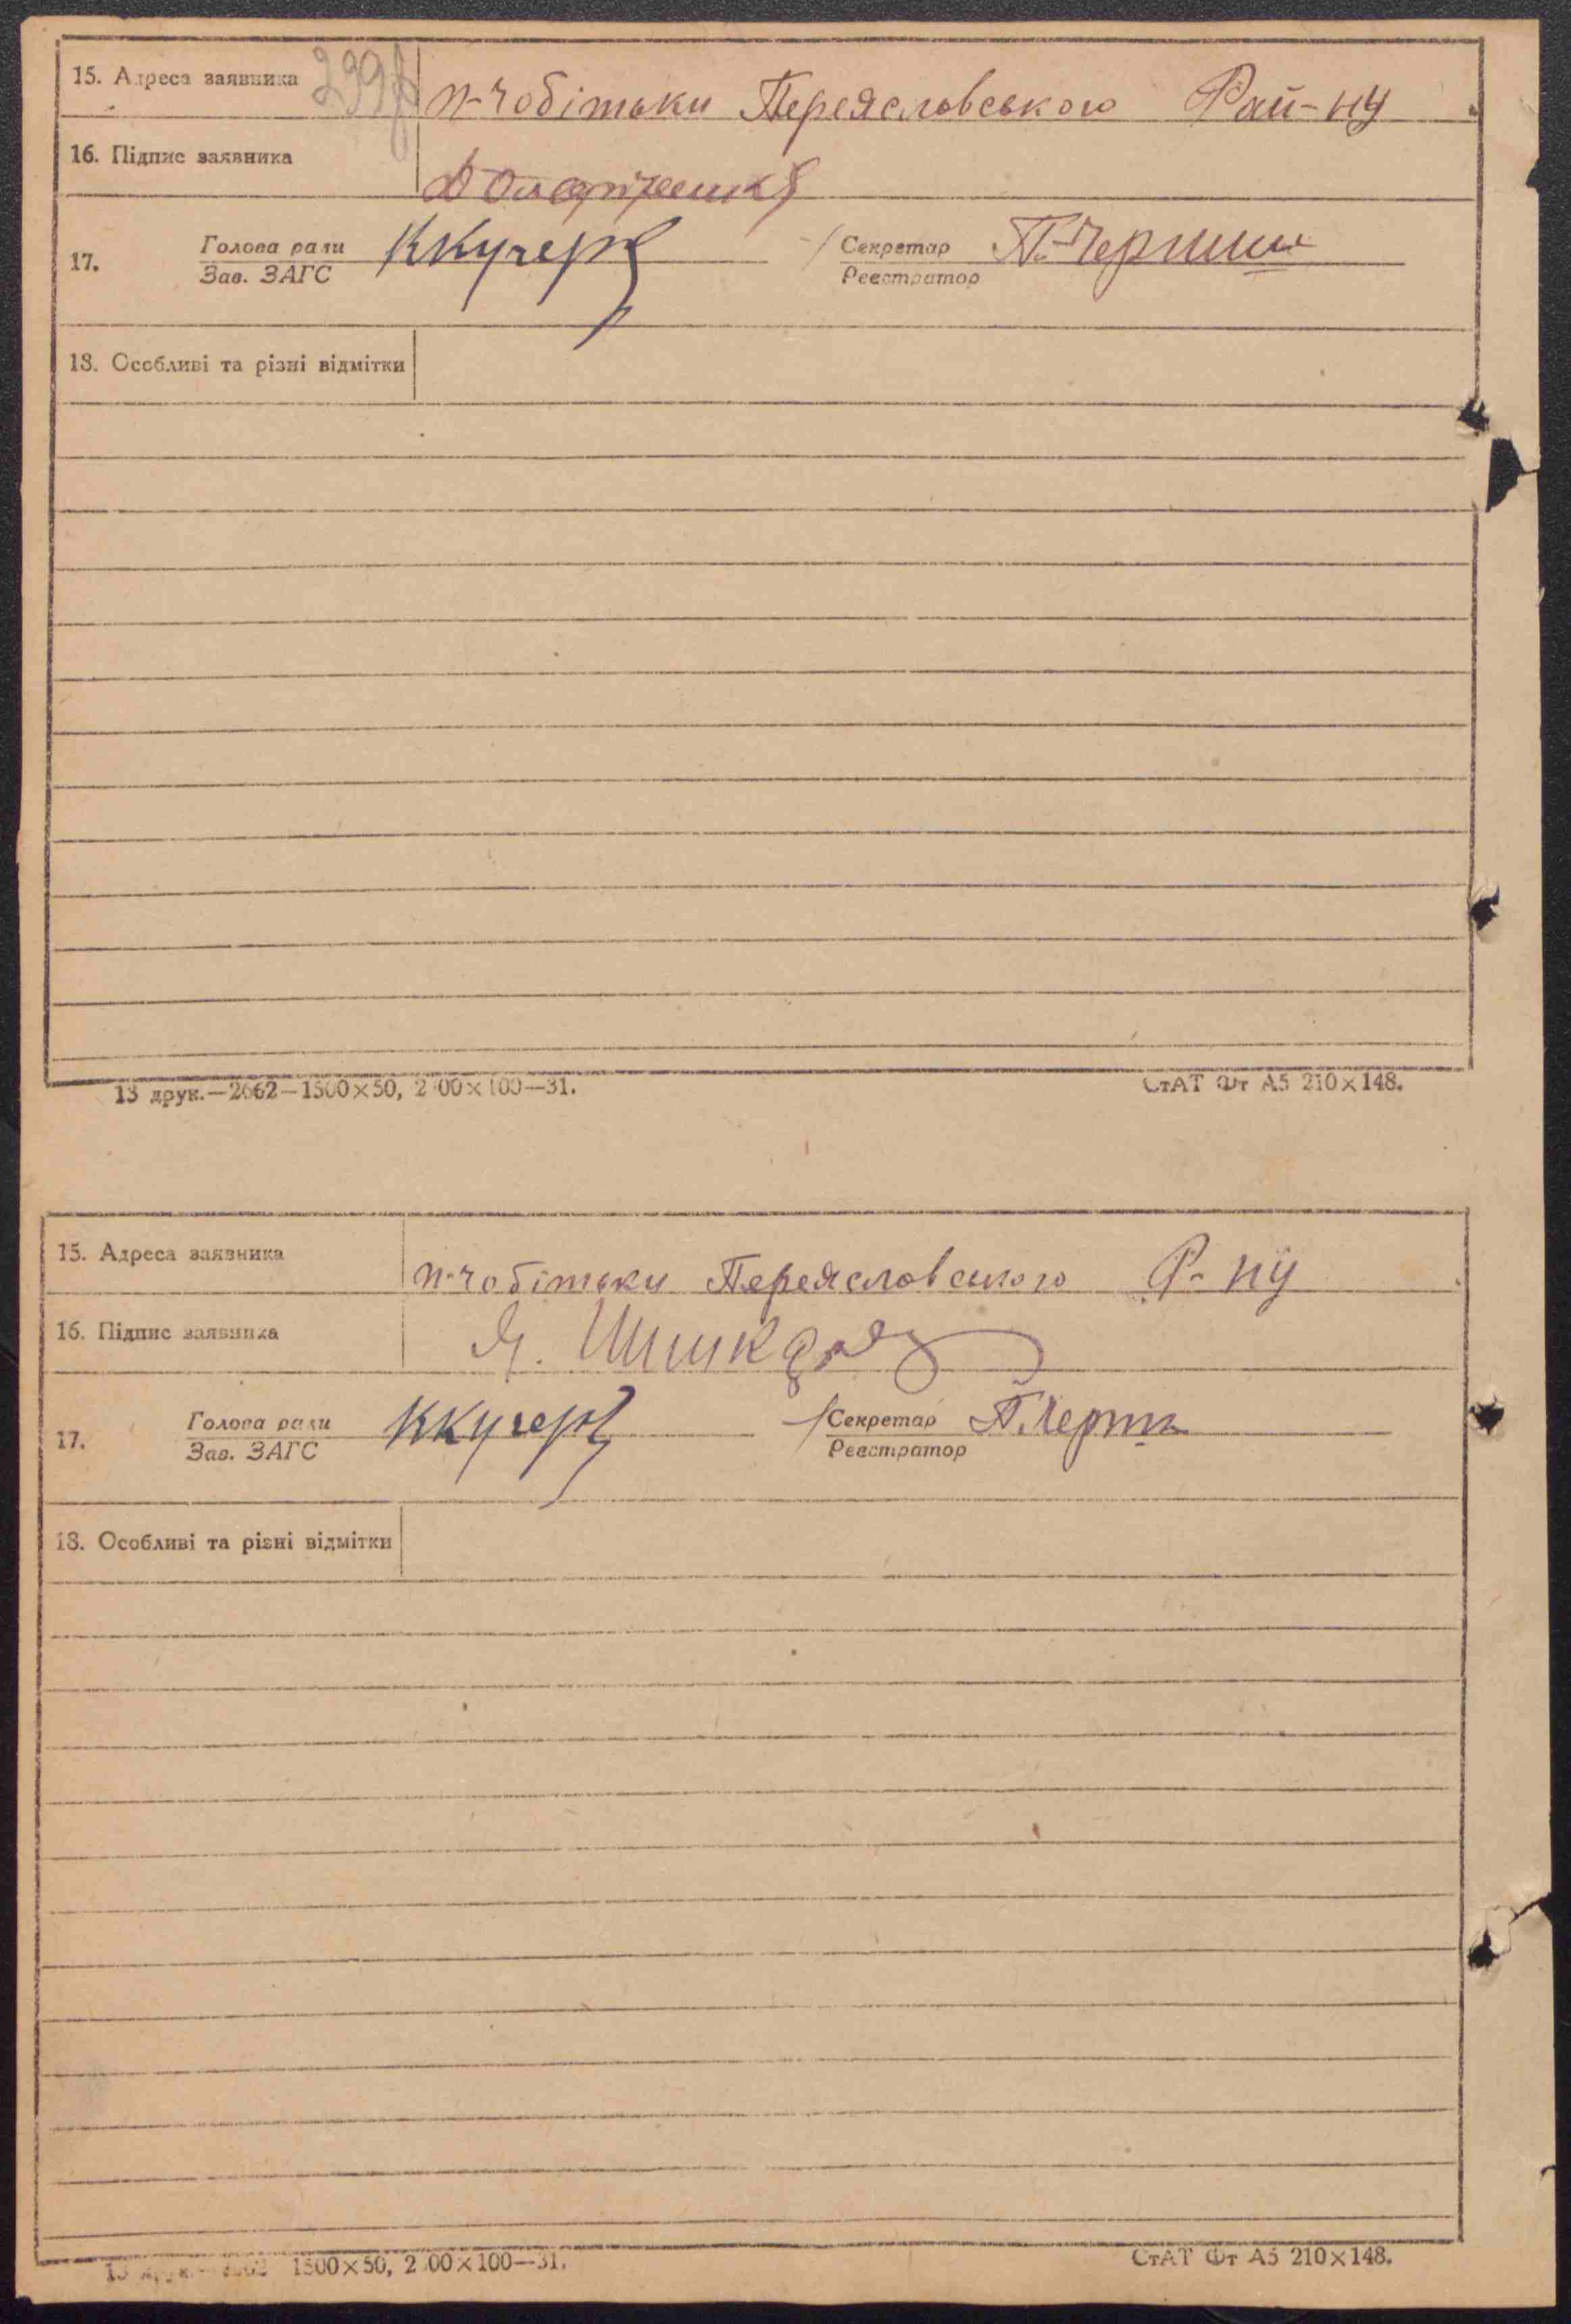 15. Адреса заявника
п-чобітьки Переясловського Рай-ну
16. Підпис заявника
17. Голова ради ККучер Секретар П. Черниш
Зав. ЗАГС Реєстратор
18. Особливі та різні відмітки
13 друк.—2662—1500×50, 2 00×100—31. СтАТ Фт А5 210×148.
15. Адреса заявника п-чобітьки Переясловського Р-ну
16. Підпис заявника
17. Голова ради ККучер Секретар
Зав. ЗАГС Реєстратор
18. Особливі та різні відмітки
1500×50, 2 00×100—31. СтАТ Фт А5 210×148.